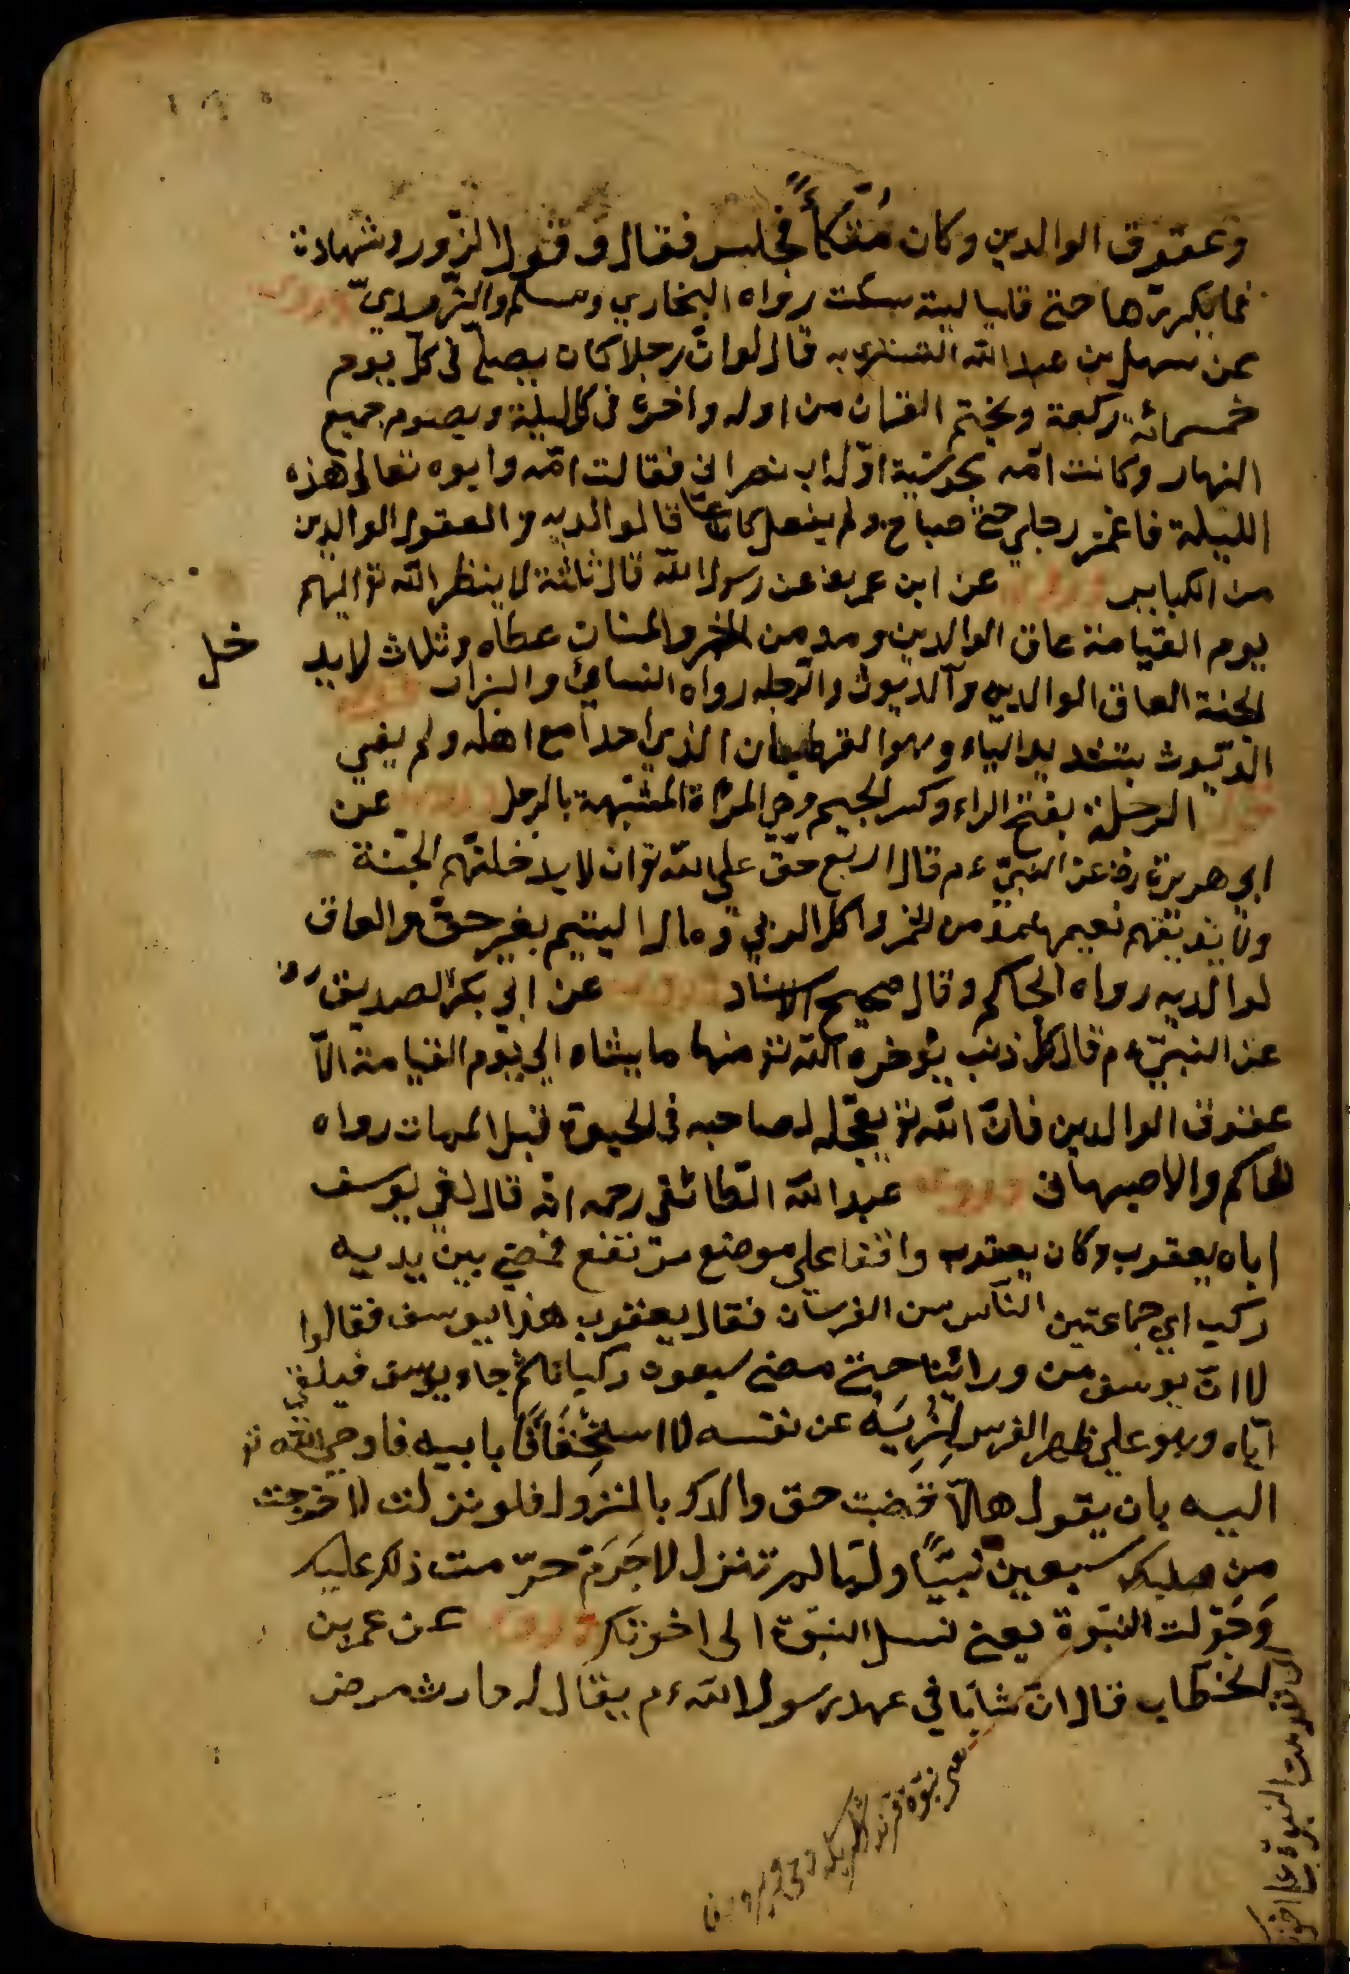 وعقوق الوالدين وكان مُتّكأً فجلس فقال و قول الزّور وشهادة
فما يكررها حتى قلنا ليته سكت رواه البخاري ومسلم والترمذيّ وروى
عن سهل بن عبد الله التستري قال لو انّ رجلا كان يصلّي في كلّ يوم
خمسمائة ركعة ويختم القرآن من اوله واخره في كل ليلة ويصوم جميع
النهار وكانت امّه مجوسيّة او اب نصراني فقالت امّه وابوه تعالى هذه
الليلة فاغمز رجلي حتى صباح ولم يفعل كان عاقا لوالديه و العقول الوالدين
من الكباير وروى عن ابن عمر رض عن رسول الله قال ثلثة لا ينظر الله تع اليهم
يوم القيامة عاق الوالدين ومدمن الخمر والمنان عطاه وثلاث لا يد
خل
الجنة العاق الوالدين والديوث والرجله رواه النسائي والبزار
الديّوث بتشديد الياء وهو القرطبان الذي احدا مع اهله ولم يغيي
الرجلة بفتح الراء وكسر الجيم وهي المرأة المتشبّهة بالرجل وروى عن
ابي هريرة رض عن النبيّ ءم قال اربع حقّ على الله تع ان لا يدخلهم الجنّة
ولا يذيقهم نعيمها مدمن الخمر واكل الربي و مال اليتيم بغير حق والعاق
لوالديه رواه الحاكم وقال صحيح الاسناد وروى عن ابي بكر الصديق رض
عن النبيّ ءم قال كل ذنب يؤخره الله تع منها ما يشاء الي يوم القيامة الّا
عقوق الوالدين فانّ الله تع يعجّله لصاحبه في الحيوة قبل الممات رواه
الحاكم والاصبهاني وروى عبد الله الطائفي رحمه الله قال لقي يوسف
اباه يعقوب وكان يعقوب واقفا على موضع مرتفع فمضى بين يديه
ركب اي جماعتين الناس من الفرسان فقال يعقوب هذا يوسف فقالوا
لا انّ يوسف من ورائنا حتى مضى سبعون ركبانا ثم جاء يوسف فيلقى
اباه وهو على ظهر الفرس عن نفسه لا استخفافا بابيه فاوحى الله تع
اليه بان يقول هلّا قضيت حق والدك بالنزول فلو نزلت لاخرجت
من صلبك سبعين نبيّاً ولمّا لم تنزل لا جَرَمَ حرّمت ذلك عليك
وَحَوّلت النبوة يعني نسل النبوة الى اخوتك وروى عن عمر بن
الخطاب قال انّ شابّا في عهد رسول الله ءم يقال له حارث مرض